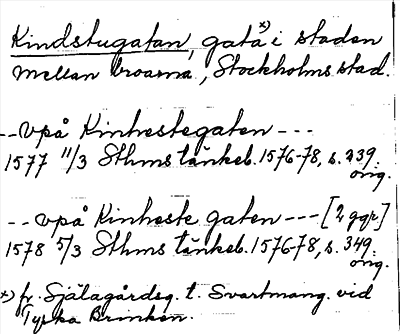 Kindstugatan, gata x) i staden
mellan broarna, Stockholms stad.
-- vpå Kinhestegaten ---
1577 11/3 Sthms tänkeb. 1576-78, s. 239.
orig.
-- vpå Kinheste gaten --- [2 ggr]
1578 5/3 Sthms tänkeb. 1576-78, s. 349.
orig.
x) fr. Själagårdsg. t. Svartmang. vid
Tyska Brinken.